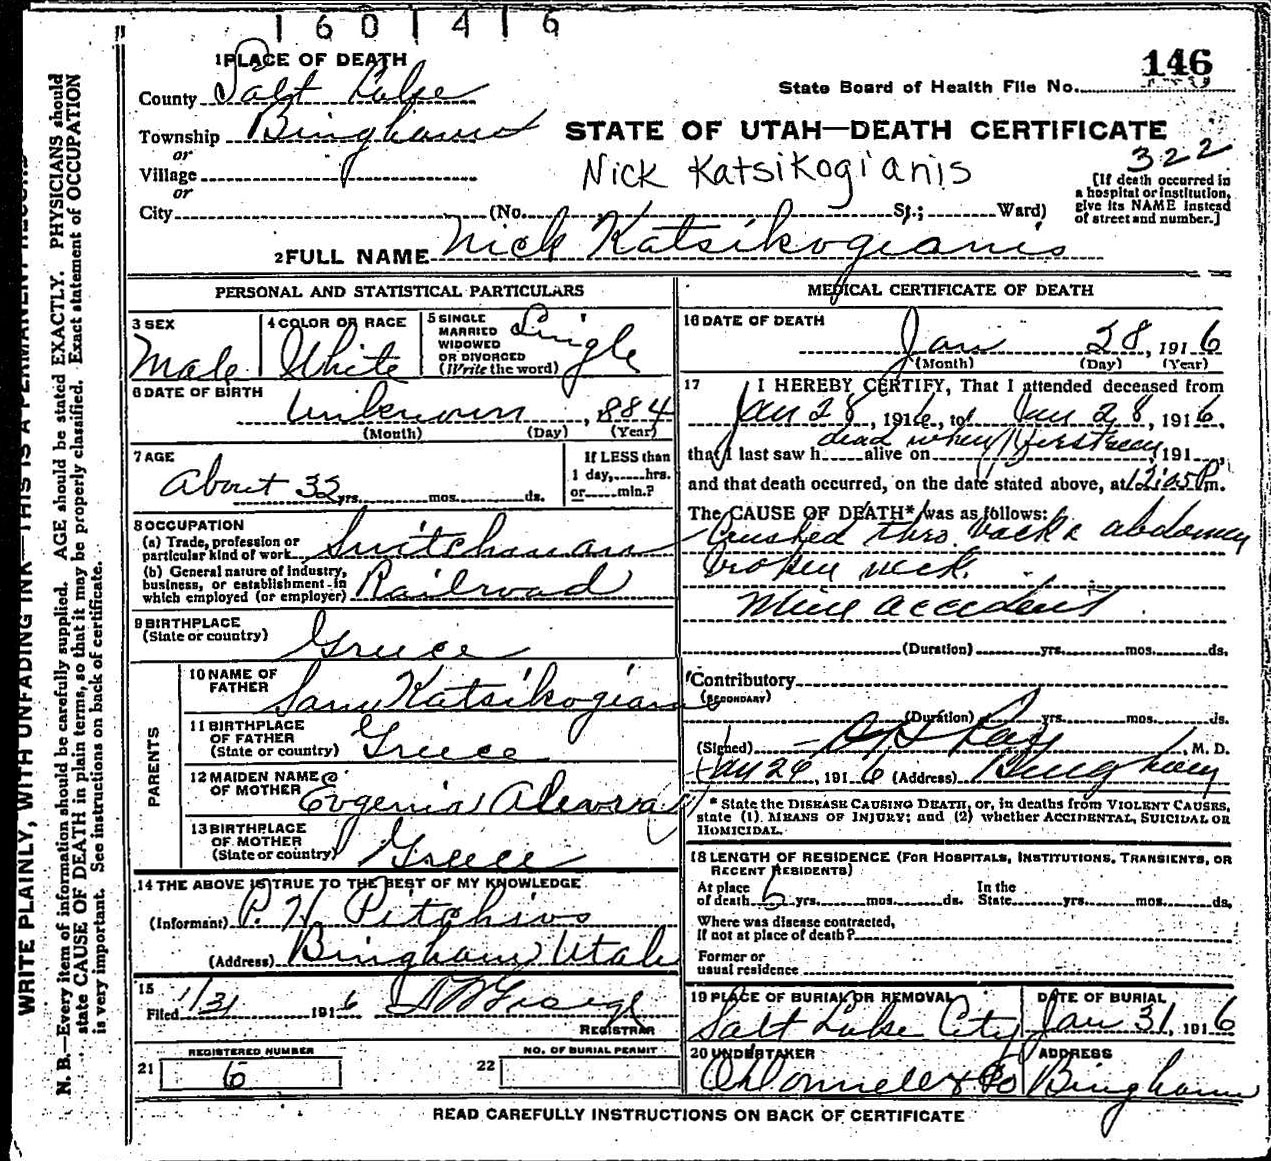 1601416
1 PLACE OF DEATH
146
County Salt Lake
State Board of Health File No.
Township Bingham
STATE OF UTAH—DEATH CERTIFICATE
or
322
Village
Nick Katsikogianis
[If death occurred in a hospital or institution, give its NAME instead of street and number.]
or
City (No. St.; Ward)
2 FULL NAME Nick Katsikogianis
PERSONAL AND STATISTICAL PARTICULARS
3 SEX Male
4 COLOR OR RACE White
5 SINGLE MARRIED WIDOWED OR DIVORCED (Write the word) Single
6 DATE OF BIRTH Unknown, 1884
(Month) (Day) (Year)
7 AGE About 32 yrs. mos. ds.
If LESS than 1 day, hrs. or min.?
8 OCCUPATION
(a) Trade, profession or particular kind of work Switchman
(b) General nature of industry, business, or establishment in which employed (or employer) Railroad
9 BIRTHPLACE (State or country) Greece
PARENTS
10 NAME OF FATHER Sam Katsikogianis
11 BIRTHPLACE OF FATHER (State or country) Greece
12 MAIDEN NAME OF MOTHER Evgenia
13 BIRTHPLACE OF MOTHER (State or country) Greece
14 THE ABOVE IS TRUE TO THE BEST OF MY KNOWLEDGE
(Informant) P. H. Pitchios
(Address) Bingham Utah
15 Filed 1/31 1916
REGISTRAR
21 REGISTERED NUMBER 6
22 NO. OF BURIAL PERMIT
MEDICAL CERTIFICATE OF DEATH
16 DATE OF DEATH
Jan 28, 1916
(Month) (Day) (Year)
17 I HEREBY CERTIFY, That I attended deceased from
Jan 28, 1916, to Jan 28, 1916,
dead when first seen
that I last saw h alive on , 191 ,
and that death occurred, on the date stated above, at 12:05 P m.
The CAUSE OF DEATH* was as follows:
Crushed thro. back & abdomen
broken neck.
Mine accident
(Duration) yrs. mos. ds.
Contributory
(SECONDARY)
(Duration) yrs. mos. ds.
(Signed) Ray, M. D.
Jan 26, 1916 (Address) Bingham
* State the DISEASE CAUSING DEATH, or, in deaths from VIOLENT CAUSES, state (1) MEANS OF INJURY; and (2) whether ACCIDENTAL, SUICIDAL OR HOMICIDAL.
18 LENGTH OF RESIDENCE (FOR HOSPITALS, INSTITUTIONS, TRANSIENTS, OR RECENT RESIDENTS)
At place of death 6 yrs. mos. ds. In the State yrs. mos. ds.
Where was disease contracted, If not at place of death?
Former or usual residence
19 PLACE OF BURIAL OR REMOVAL Salt Lake City
DATE OF BURIAL Jan 31, 1916
20 UNDERTAKER O'Donnell & Co
ADDRESS Bingham
READ CAREFULLY INSTRUCTIONS ON BACK OF CERTIFICATE
WRITE PLAINLY, WITH UNFADING INK—THIS IS A PERMANENT RECORD
N. B.—Every item of information should be carefully supplied. AGE should be stated EXACTLY. PHYSICIANS should
state CAUSE OF DEATH in plain terms, so that it may be properly classified. Exact statement of OCCUPATION
is very important. See instructions on back of certificate.